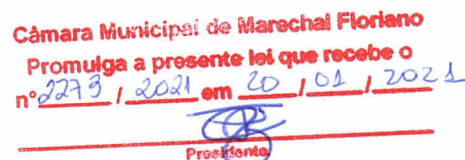 Câmara Municipal de Marechal Floriano
Promulga a presente lei que recebe o
nº 2273 / 2021 em 20 / 01 / 2021
Presidente